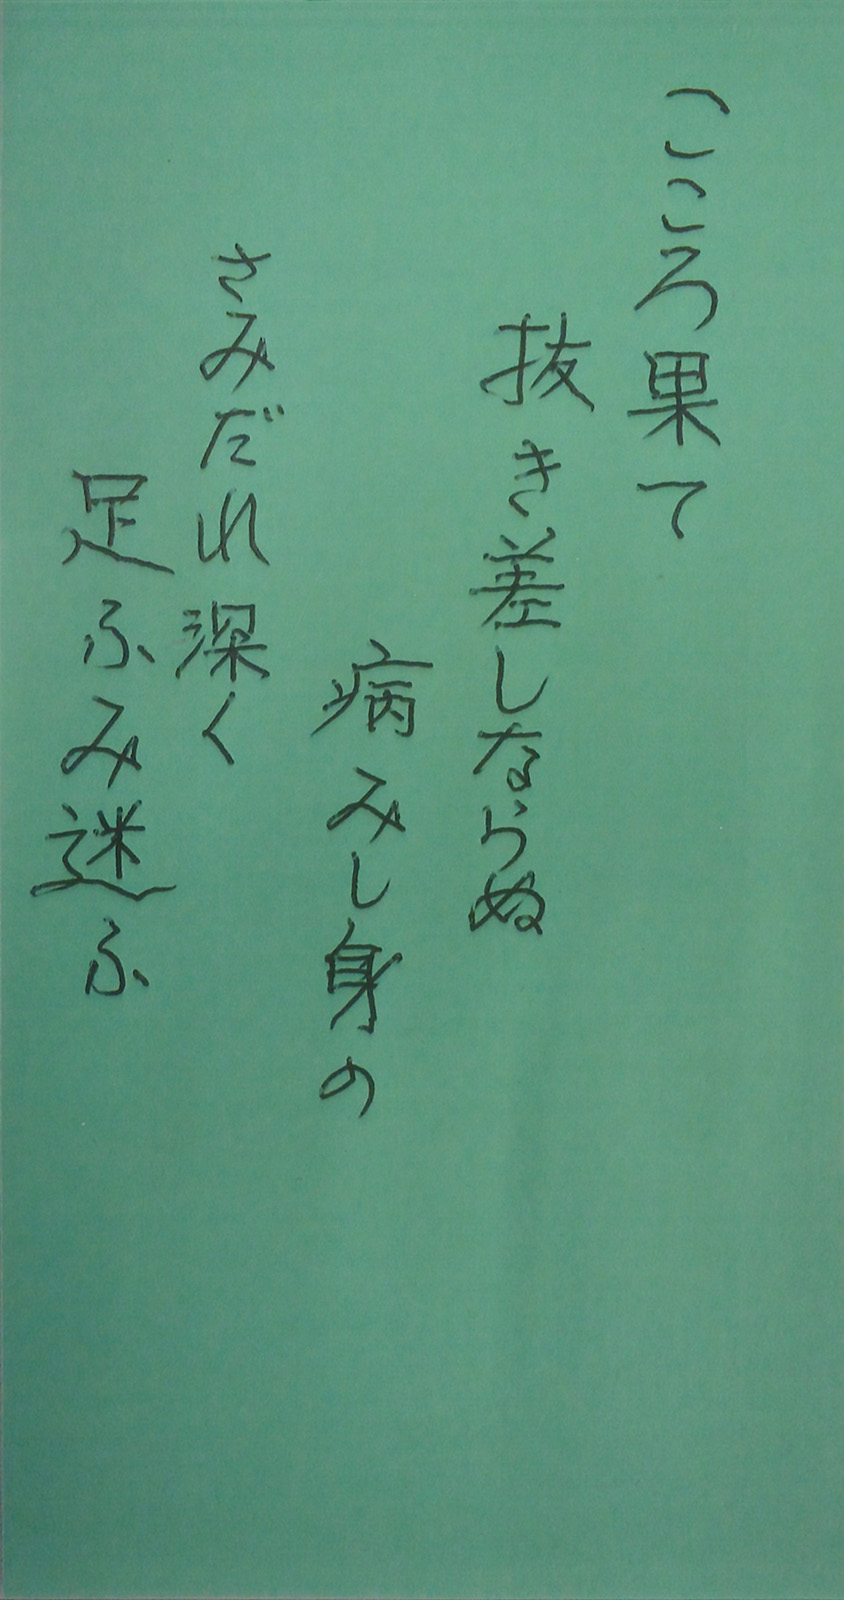 こころ果て
抜き差しならぬ
病みし身の
さみだれ深く
足ふみ迷ふ